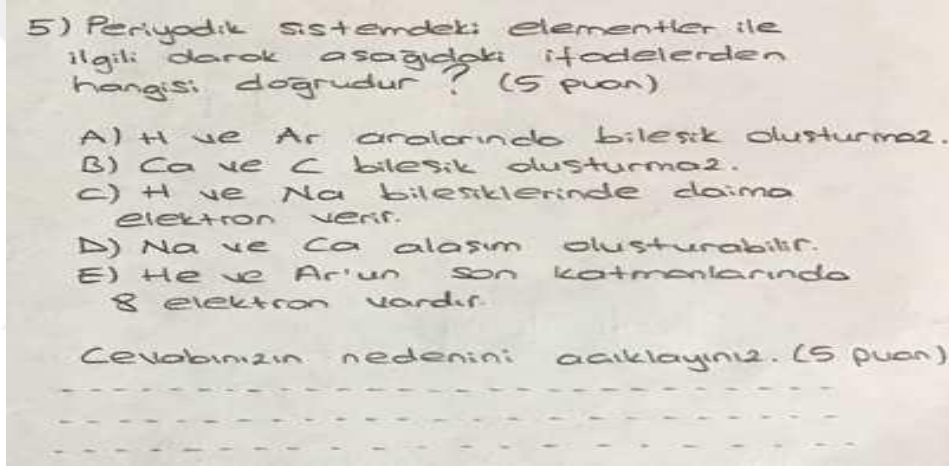 5) Periyodik sistemdeki elementler ile
ilgili olarak aşağıdaki ifadelerden
hangisi doğrudur? (5 puan)
A) H ve Ar aralarında bileşik oluşturmaz.
B) Ca ve C bileşik oluşturmaz.
C) H ve Na bileşiklerinde daima
elektron verir.
D) Na ve Ca alaşım oluşturabilir.
E) He ve Ar'un son katmanlarında
8 elektron vardır.
Cevabınızın nedenini açıklayınız. (5 puan)